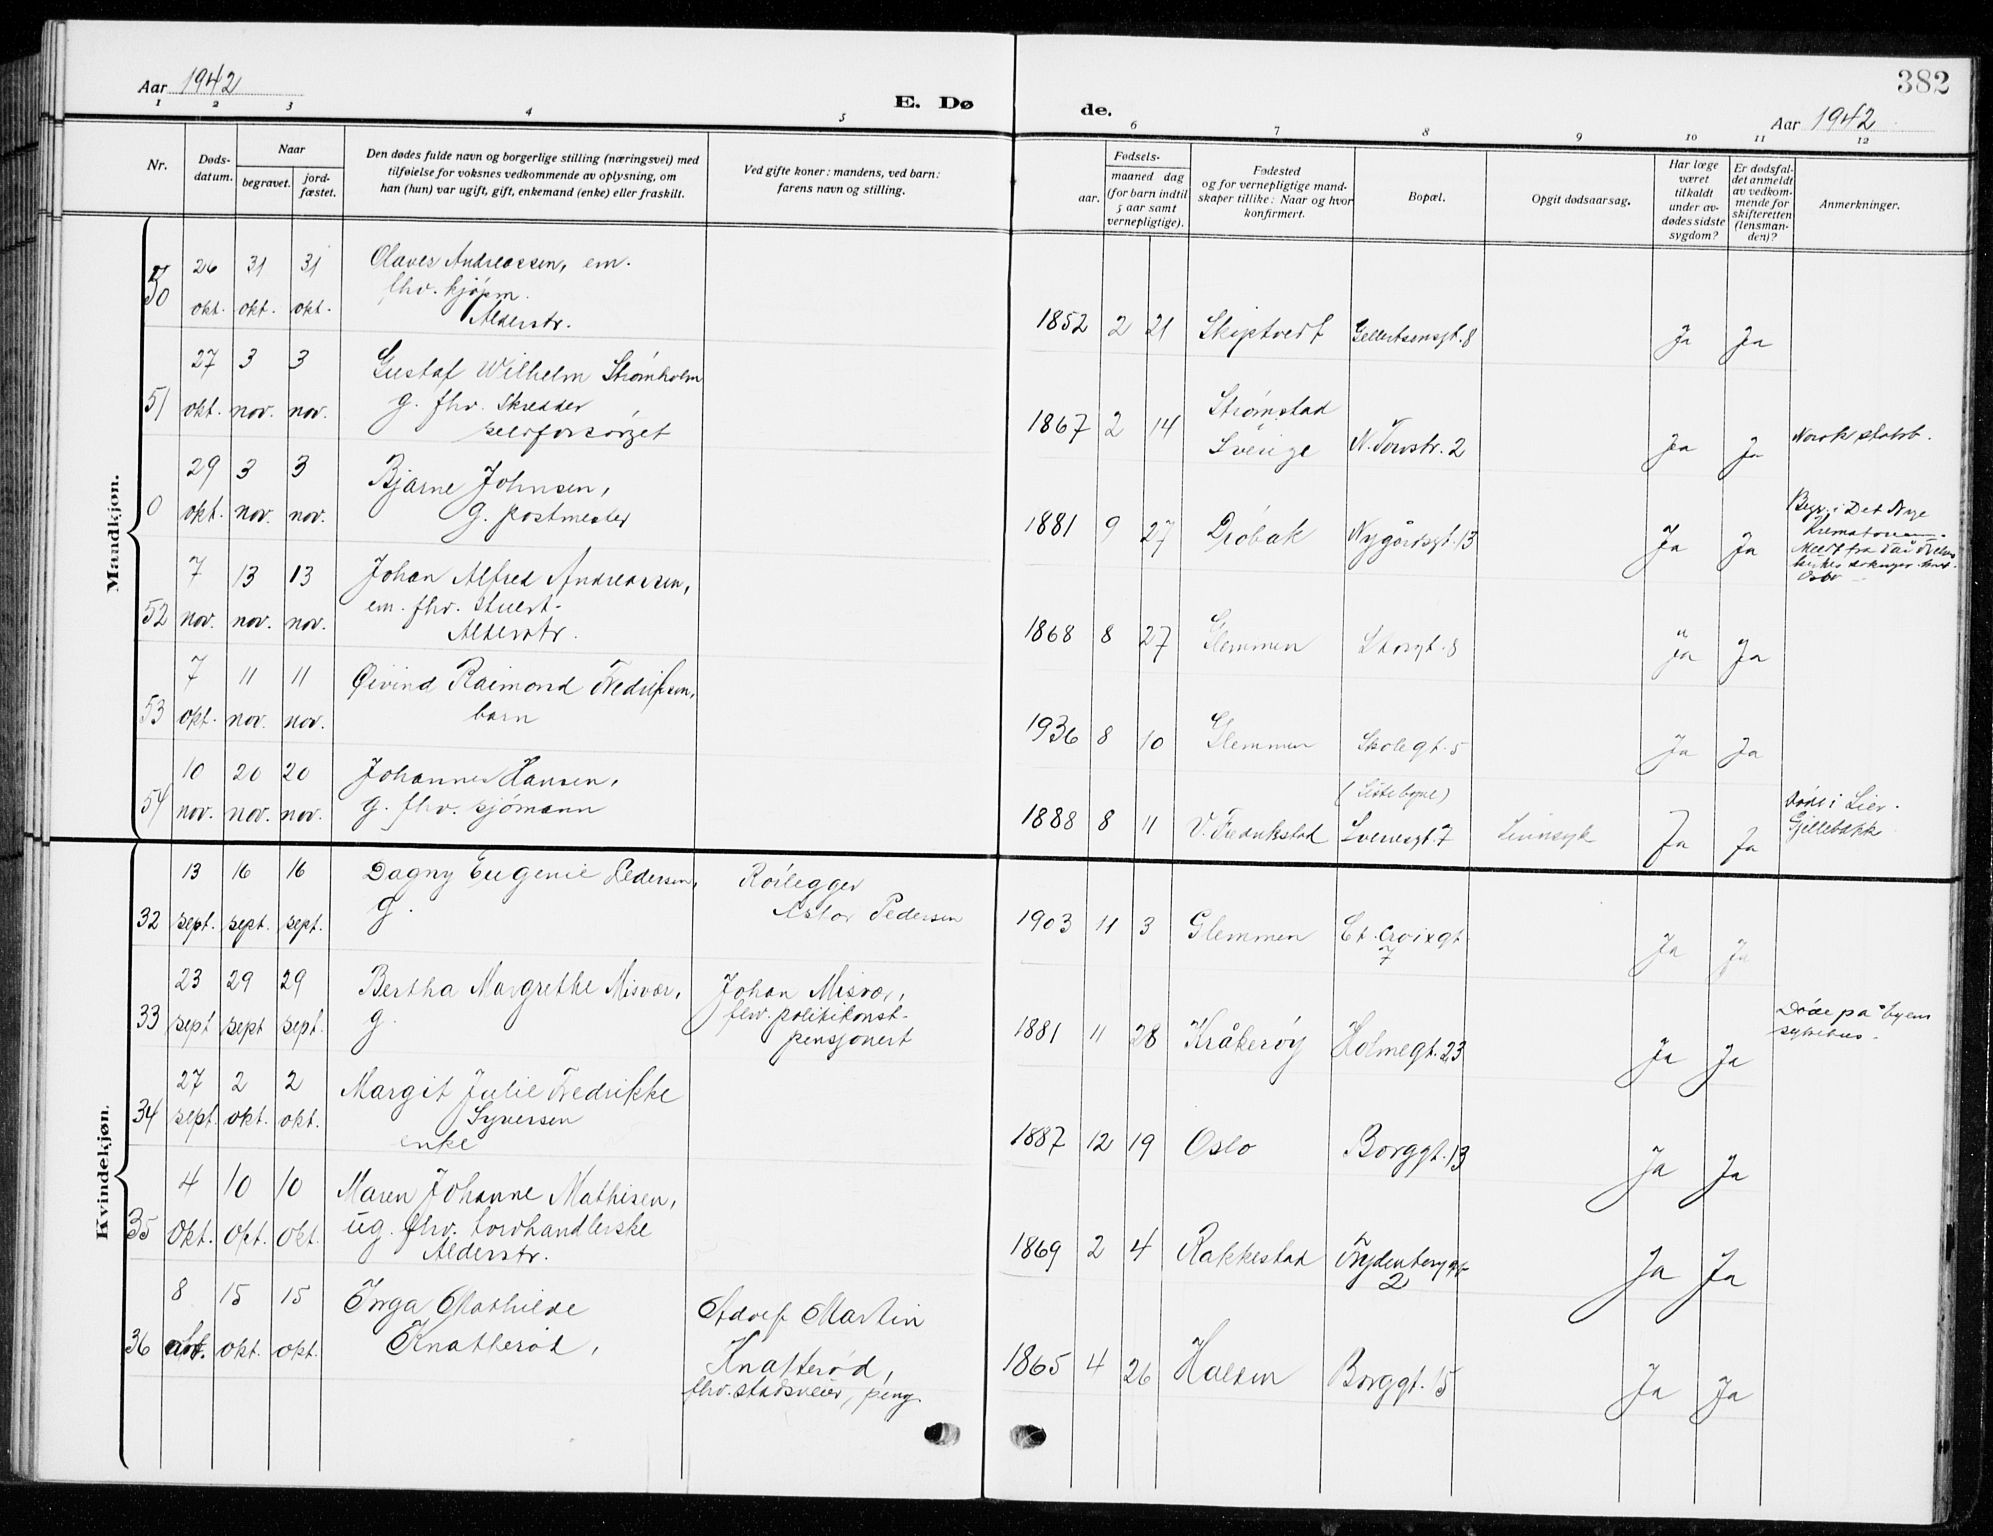 Aar 1942
E. Dø
de.
382
Aar 1942
1 2 3 4 5 6 7 8 9 10 11 12
Nr.
Døds-
datum.
Naar
begravet.
jord-
fæstet.
Den dødes fulde navn og borgerlige stilling (næringsvei) med
tilføielse for voksnes vedkommende av oplysning, om
han (hun) var ugift, gift, enkemand (enke) eller fraskilt.
Ved gifte koner: mandens, ved barn:
farens navn og stilling.
Fødsels-
aar.
maaned dag
(for barn indtil
5 aar samt
vernepligtige).
Fødested
og for vernepligtige mand-
skaper tillike: Naar og hvor
konfirmert.
Bopæl.
Opgit dødsaarsag.
Har læge
været
tilkaldt
under av-
dødes sidste
sygdom?
Er dødsfal-
det anmeldt
av vedkom-
mende for
skifteretten
(lensman-
den)?
Anmerkninger.
Mandkjøn.
50 26 okt. 31 okt. 31 okt.
Olaves Andreassen, em.
fhv. kjøpm.
Alderstr.
1852 2 21 Skiptvedt Gellertsensgt. 8 Ja Ja
51 27 okt. 3 nov. 3 nov.
Gustaf Wilhelm Strømholm
g. fhv. Skredder
selvforsørget
1867 2 14 Strømstad
Sverige N. Torvstr. 2 Ja Ja Norsk statsb.
0 29 okt. 3 nov. 3 nov.
Bjarne Johnsen,
g. postmester
1881 9 27 Drøbak Nygårdsgt. 13 Ja Ja
Begr. i Det Nye
Krematorium.
Meldt fra
Oslo
52 7 nov. 13 nov. 13 nov.
Johan Alfred Andreassen,
em. fhv. stuert-
Alderstr.
1868 8 27 Glemmen Storgt. 8 Ja Ja
53 7 okt. 11 nov. 11 nov.
Øivind Raimond Fredriksen,
barn
1936 8 10 Glemmen Skolegt. 5 Ja Ja
54 10 nov. 20 nov. 20 nov.
Johannes Hansen,
g. fhv. sjømann
1888 8 11 V. Fredrikstad
(Sistebopæl)
Sverresgt. 7 Sinnsyk Ja Ja
Døde i Lier.
Gjellebekk
Kvindekjøn.
32 13 sept. 16 sept. 16 sept.
Dagny Eugenie Pedersen,
g.
Rørlegger
Astor Pedersen
1903 11 3 Glemmen St. Croixgt.
7 Ja Ja
33 23 sept 29 sept 29 sept.
Bertha Margrethe Misvær,
g.
Johan Misvær,
fhv. politikonst-
pensjonert
1881 11 28 Kråkerøy Holmegt. 23 Ja Ja
Døde på byens
sykehus.
34 27 sept. 2 okt. 2 okt.
Margit Julie Fredrikke
Syversen
enke
1887 12 19 Oslo Borggt. 13 Ja Ja
35 4 okt. 10 okt. 10 okt.
Maren Johanne Mathisen,
ug. fhv. torvhandlerske
Alderstr.
1869 2 4 Rakkestad Frydenberggt.
2 Ja Ja
36 8 okt. 15 okt. 15 okt.
Inga Mathilde
Knatterød,
Adolf Martin
Knatterød,
fhv. stadsveier, pens.
1865 4 26 Halden Borggt. 15 Ja Ja